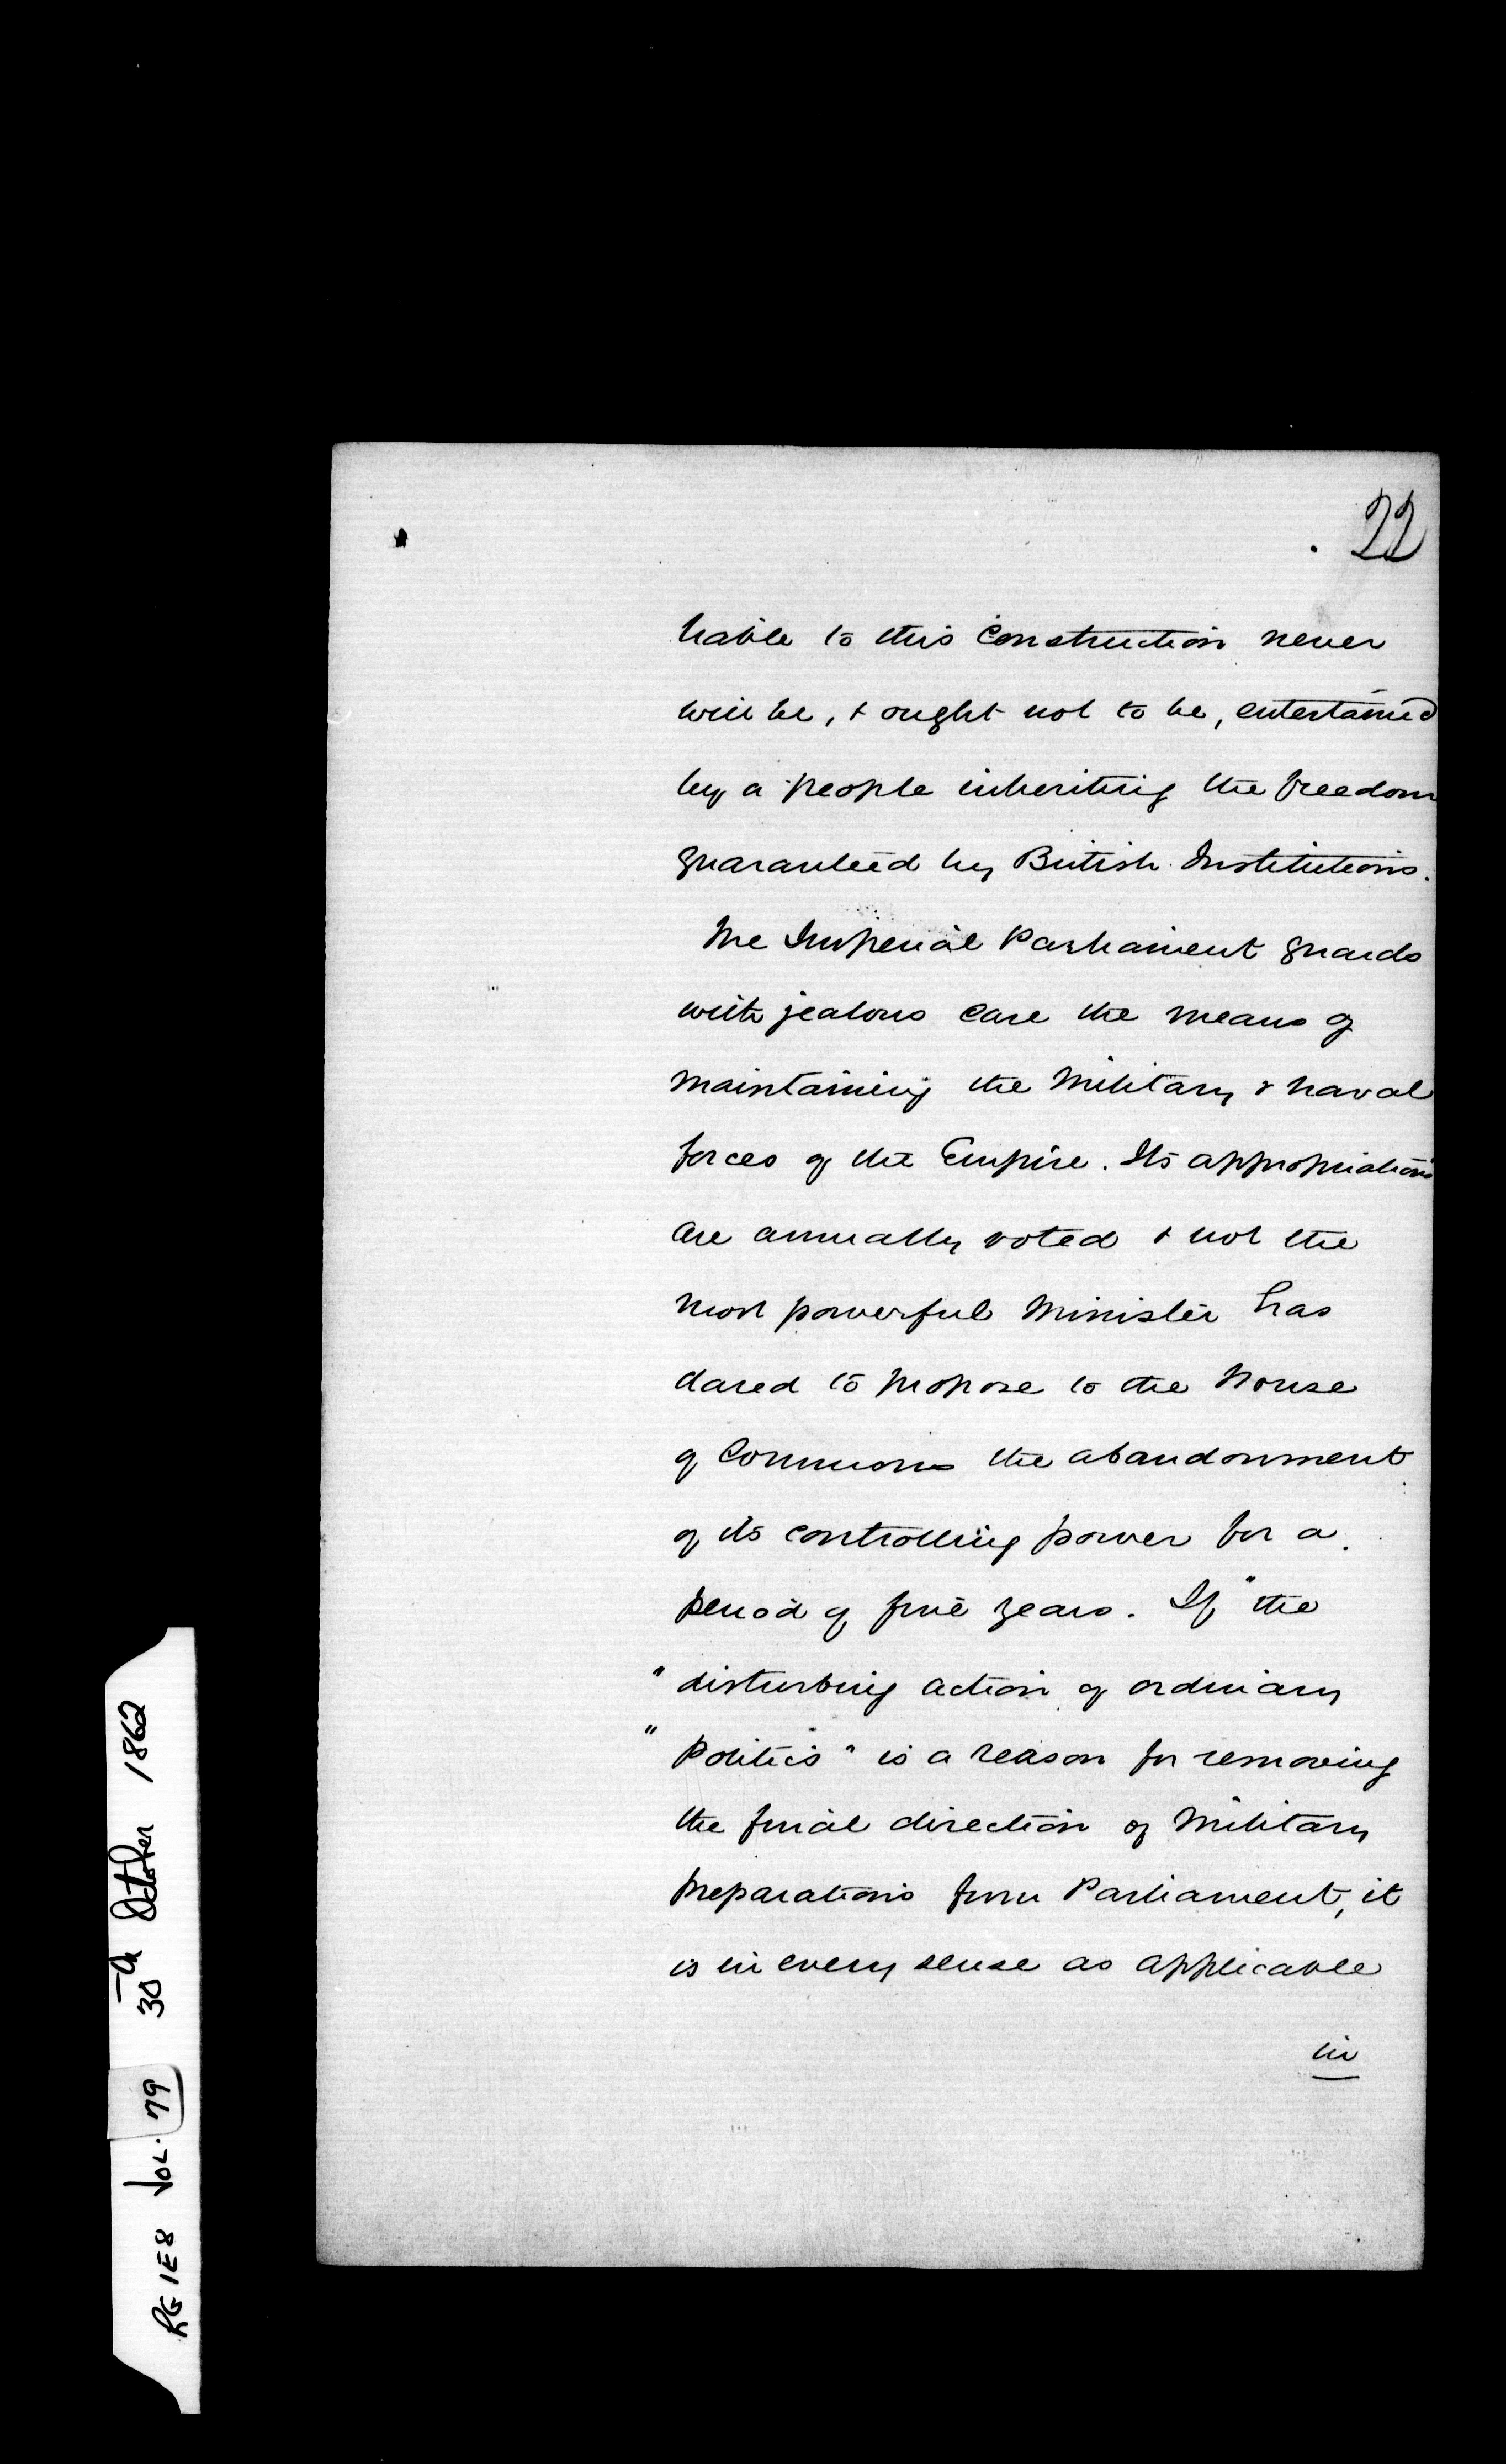 22
liable to this construction never
will be, & ought not to be, entertained
by a people inheriting the freedom
guaranteed by British Institutions.
The Imperial Parliament guards
with jealous care the means of
maintaining the Military & Naval
forces of the Empire. Its appropriations
are annually voted & not the
most powerful Minister has
dared to propose to the House
of Commons the abandonment
of its controlling power for a
period of five years. If "the
" disturbing action of ordinary
" Politics" is a reason for removing
the final direction of Military
preparations from Parliament, it
is in every sense as applicable
in
RG 1E8 VOL. 79 30th October 1862